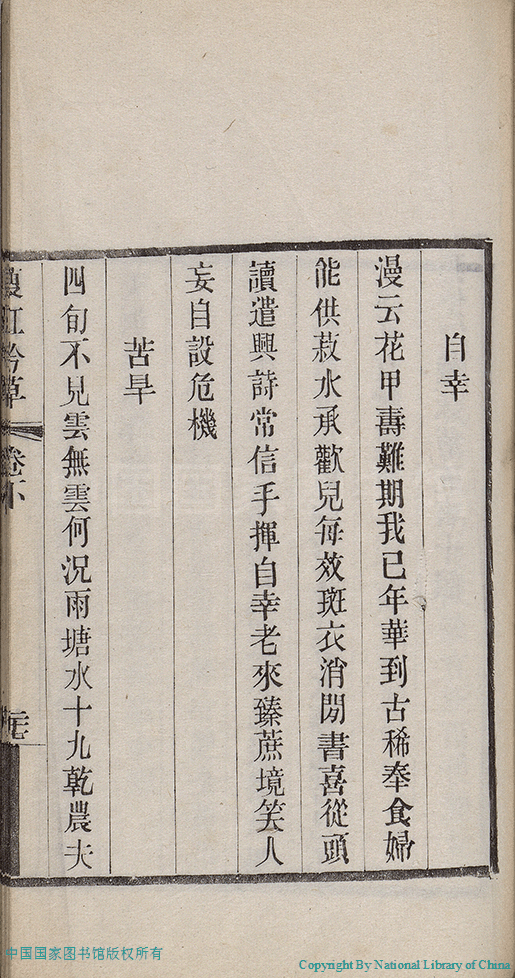 自幸
漫云花甲壽難期我已年華到古稀奉食婦
能供菽水承歡兒每效斑衣消閒書喜從頭
讀遣興詩常信手揮自幸老來臻蔗境笑人
妄自設危機
苦旱
四旬不見雲無雲何況雨塘水十九乾農夫
吟草
卷下
中国国家图书馆版权所有
Copyright By National Library of China